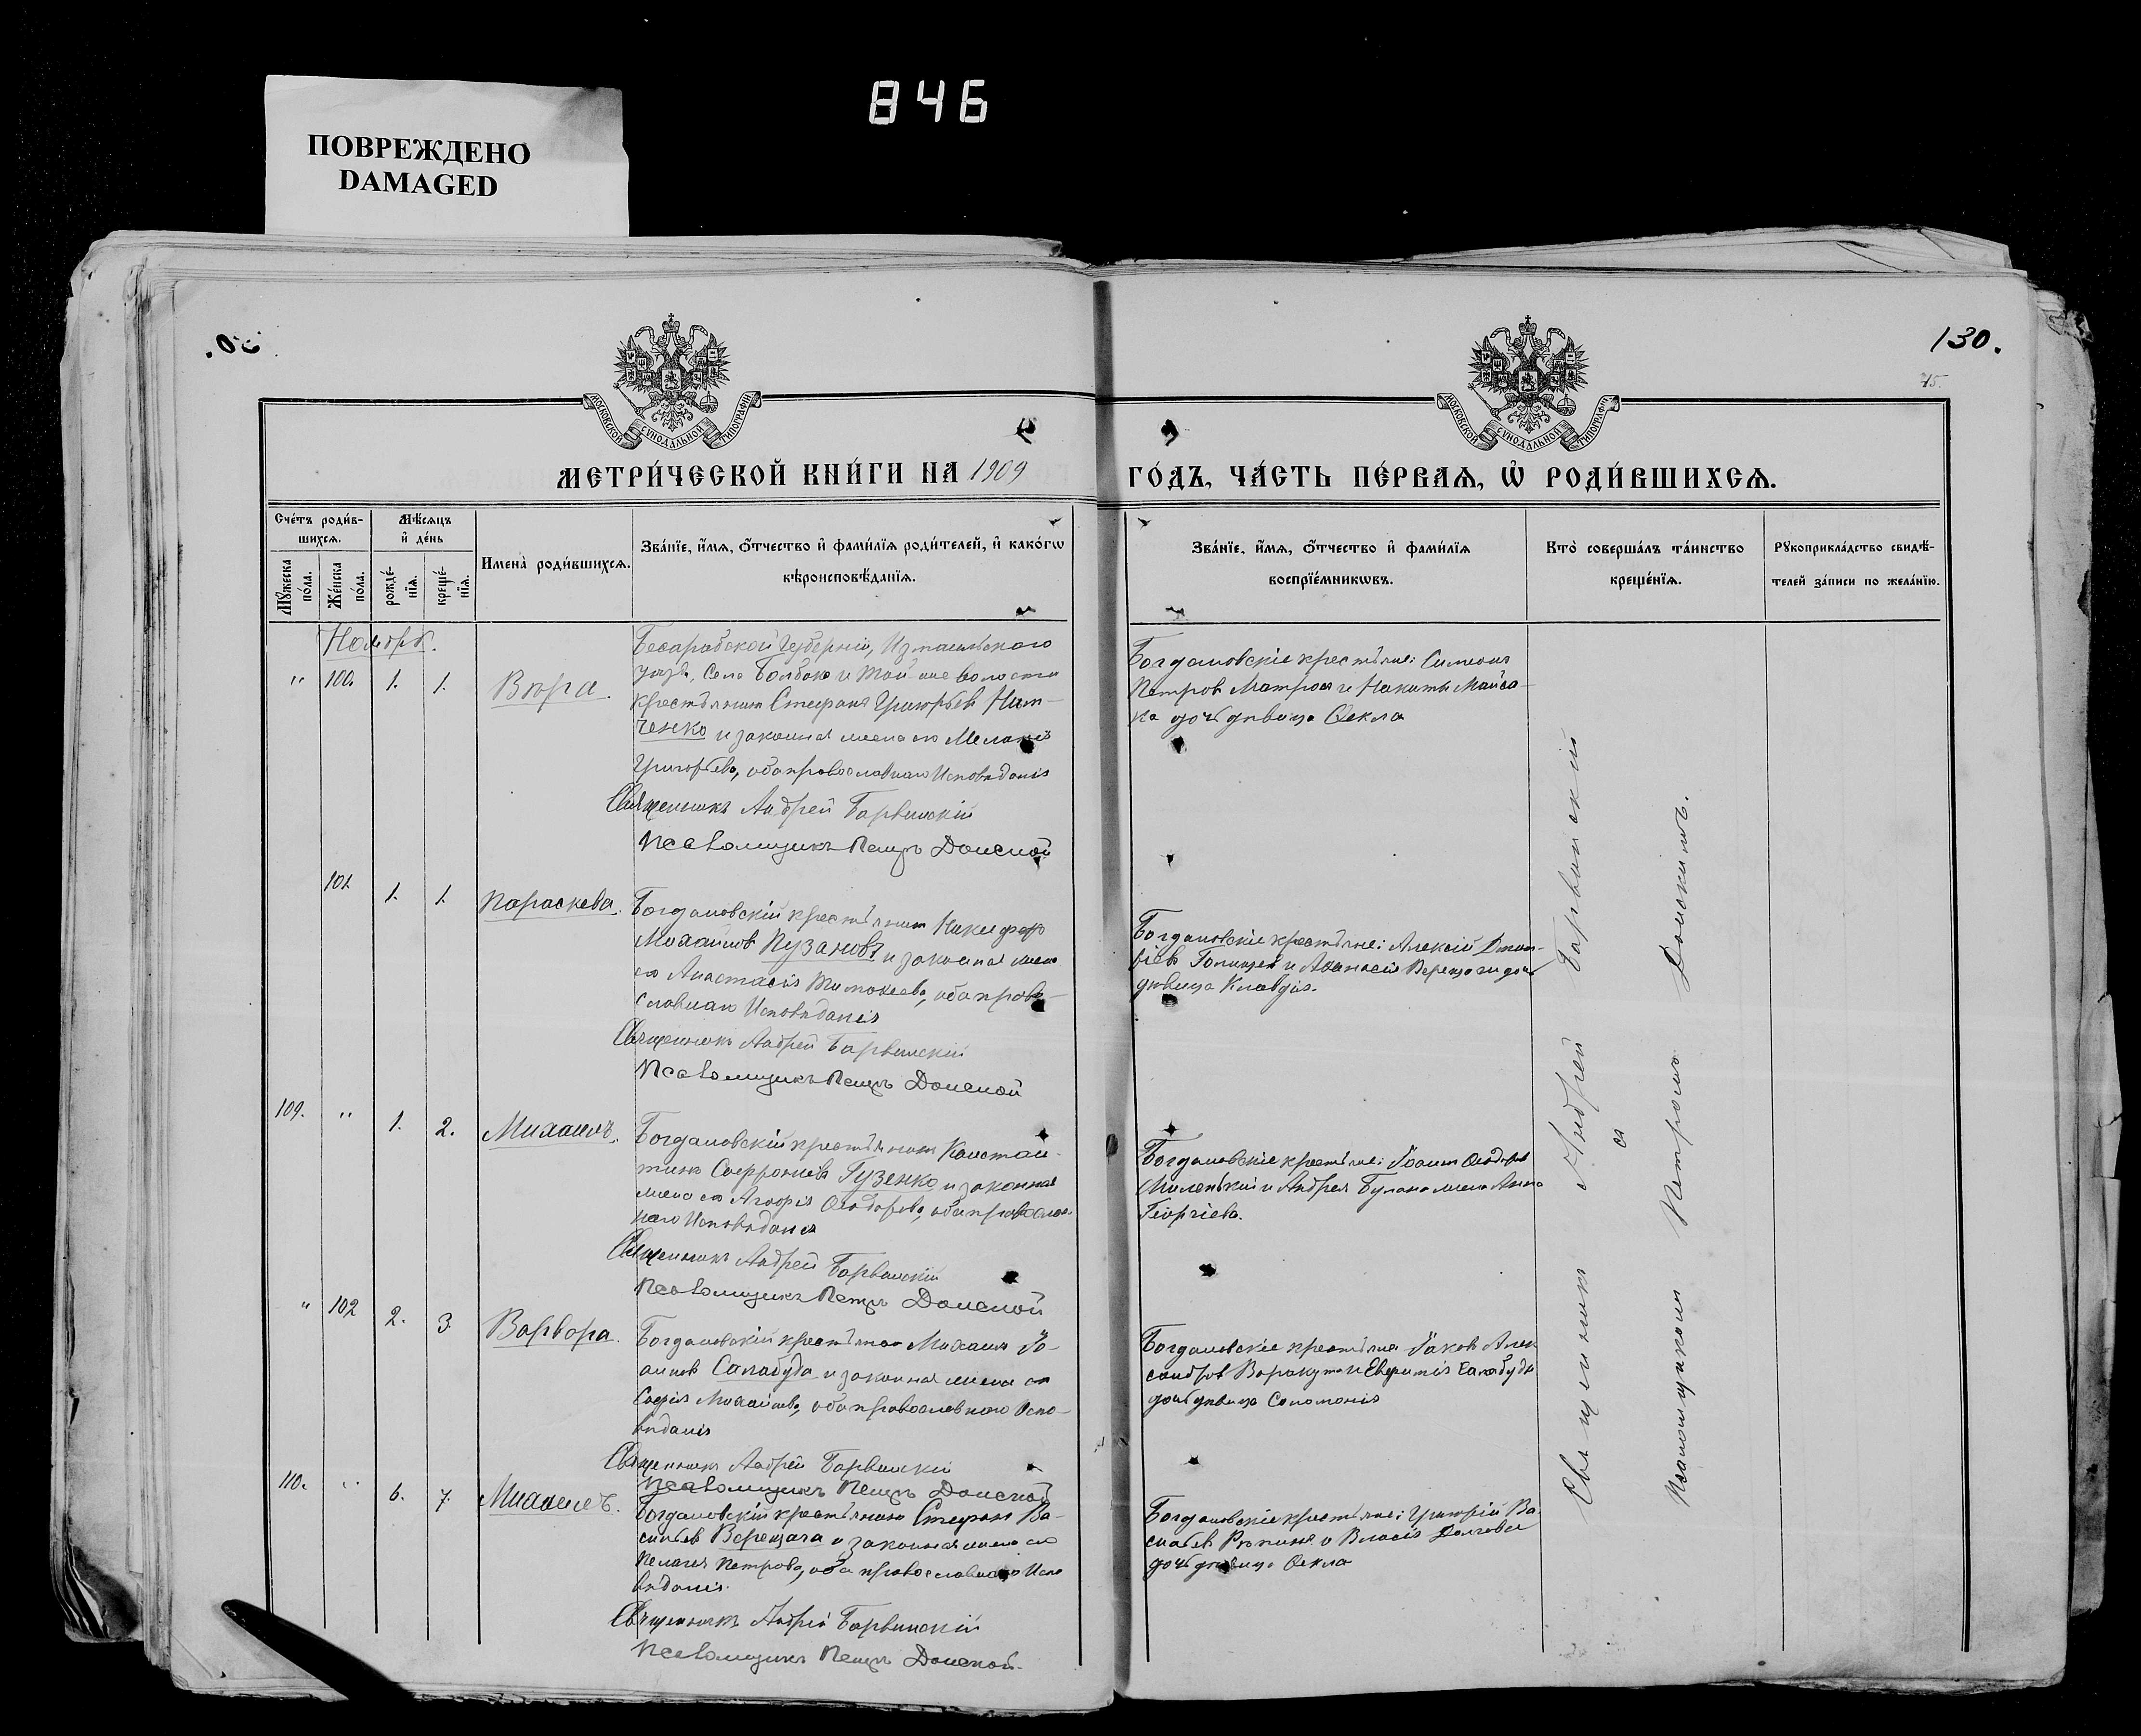 846
ПОВРЕЖДЕНО
DAMAGED
130.
75.
МОСКОВСКОЙ СѴНОДАЛЬНОЙ ТИПОГРАФІИ
МОСКОВСКОЙ СѴНОДАЛЬНОЙ ТИПОГРАФІИ
МЕТРИ́ЧЕСКОЙ КНИ́ГИ НА 1909
ГО́ДЪ, ЧА́СТЬ ПЕ́РВАѦ, Ѡ҆ РОДИ́ВШИХСѦ.
Сче́тъ роди́в-
шихсѧ.
Мѣ́сѧцъ
и҆ де́нь
Мꙋ́жеска по́ла.
Же́нска по́ла.
рожде́-нїѧ.
креще́-нїѧ.
Имена̀ роди́вшихсѧ.
Зва́нїе, и҆́мѧ, ѻ҆́тчество и҆ фами́лїѧ роди́телей, и҆ како́гѡ
вѣроисповѣ́данїѧ.
Зва́нїе, и҆́мѧ, ѻ҆́тчество и҆ фами́лїѧ
воспрїе́мникѡвъ.
Кто̀ соверша́лъ та́инство
креще́нїѧ.
Рꙋкоприкла́дство свидѣ́-
телей за́писи по жела́нїю.
Ноябрь.
" 100. 1. 1. Вѣра.
Бесарабской Губерніи, Измаильскаго
уѣзда, села Болбока и той же волости
крестьянинъ Стефанъ Григорьевъ Нит-
ченко и законная жена его Меланія
Григорьева, оба православнаго Исповѣданія
Священникъ Андрей Барвинскій
Псаломщикъ Петръ Донской
Богдановскіе крестьяне: Симеонъ
Петровъ Матрося и Никиты Майса-
ка дочь дѣвица Ѳекла
101 1. 1. Параскева.
Богдановскій крестьянинъ Никифоръ
Михаиловъ Пузановъ и законная жена
его Анастасія Тимоѳеева, оба право-
славнаго Исповѣданія
Священникъ Андрей Барвинскій
Псаломщикъ Петръ Донской
Богдановскіе крестьяне: Алексій Дмит-
ріевъ и Аѳанасія Верещаги дочь
дѣвица Клавдія.
109. " 1. 2. Михаилъ.
Богдановскій крестьянинъ Констан-
тинъ Софроніевъ Гузенко и законная
жена его Агафія Ѳеодорова, оба православ-
наго Исповѣданія
Священникъ Андрей Барвинскій
Псаломщикъ Петръ Донской
Богдановскіе крестьяне: Іоаннъ Ѳеодоровъ
Миленькій и Андрея Булана жена Анна
Георгіева.
" 102 2. 3. Варвара.
Богдановскій крестьянинъ Михаилъ Іо-
анновъ Салабуда и законная жена его
Софія Михайлова, оба православнаго Испо-
вѣданія
Священникъ Андрей Барвинскій
Псаломщикъ Петръ Донской
Богдановскіе крестьяне Іаковъ Алек-
сандровъ Варакута и Евфимія Салабуды
дочь дѣвица Соломонія
110. " 6. 7. Михаилъ.
Богдановскій крестьянинъ Стефанъ Ва-
сильевъ Верещага и законная жена его
Пелагея Петрова, оба православнаго Испо-
вѣданія.
Священникъ Андрей Барвинскій
Псаломщикъ Петръ Донской.
Богдановскіе крестьяне: Григорій Ва-
сильевъ Рѣпинъ и Власія Долгова
дочь дѣвица Ѳекла
Священникъ Андрей Барвинскій
съ
Псаломщикомъ Петромъ Донскимъ.